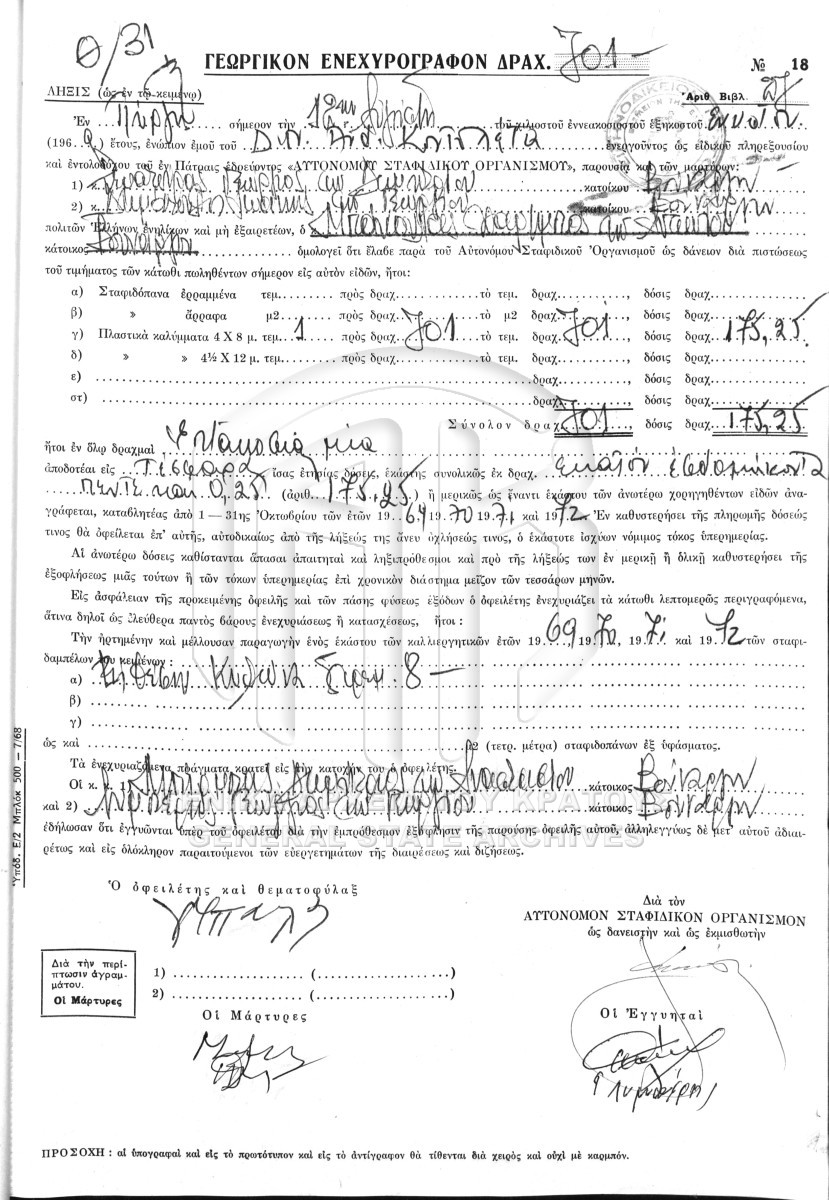 Θ/31
ΓΕΩΡΓΙΚΟΝ ΕΝΕΧΥΡΟΓΡΑΦΟΝ ΔΡΑΧ. 701 —
№ 18
ΛΗΞΙΣ (ὡς ἐν τῷ κειμένῳ)
Ἀριθ. Βιβλ.
Ἐν Πύργῳ σήμερον τὴν 12ην τοῦ χιλιοστοῦ ἐννεακοσιοστοῦ ἑξηκοστοῦ ἐννάτου
(196 9) ἔτους, ἐνώπιον ἐμοῦ τοῦ ἐνεργοῦντος ὡς εἰδικοῦ πληρεξουσίου
καὶ ἐντολοδόχου τοῦ ἐν Πάτραις ἑδρεύοντος «ΑΥΤΟΝΟΜΟΥ ΣΤΑΦΙΔΙΚΟΥ ΟΡΓΑΝΙΣΜΟΥ», παρουσίᾳ καὶ τῶν μαρτύρων:
1) κ. Γεώργιος κατοίκου Βουνάργου
2) κ. Ἰωάννης τοῦ Γεωργίου κατοίκου Βουνάργου
πολιτῶν Ἑλλήνων ἐνηλίκων καὶ μὴ ἐξαιρετέων, ὁ κ.
κάτοικος Βουνάργου ὁμολογεῖ ὅτι ἔλαβε παρὰ τοῦ Αὐτονόμου Σταφιδικοῦ Ὀργανισμοῦ ὡς δάνειον διὰ πιστώσεως
τοῦ τιμήματος τῶν κάτωθι πωληθέντων σήμερον εἰς αὐτὸν εἰδῶν, ἤτοι:
α) Σταφιδόπανα ἐρραμμένα τεμ. πρὸς δραχ. τὸ τεμ. δραχ. , δόσις δραχ.
β) » ἄρραφα μ2 πρὸς δραχ. τὸ μ2 δραχ. , δόσις δραχ.
γ) Πλαστικὰ καλύμματα 4 Χ 8 μ. τεμ. 1 πρὸς δραχ. 701 τὸ τεμ. δραχ. 701 , δόσις δραχ. 175,25
δ) » » 4½ Χ 12 μ. τεμ. πρὸς δραχ. τὸ τεμ. δραχ. , δόσις δραχ.
ε) δραχ. , δόσις δραχ.
στ) δραχ. , δόσις δραχ.
Σύνολον δραχ. 701 δόσις δραχ. 175,25
ἤτοι ἐν ὅλῳ δραχμαὶ Ἑπτακόσια μία
ἀποδοτέαι εἰς Τέσσαρα ἴσας ἐτησίας δόσεις, ἑκάστης συνολικῶς ἐκ δραχ. Ἑκατὸν ἑβδομήκοντα
πέντε καὶ 0,25 (ἀριθ. 175,25) ἢ μερικῶς ὡς ἔναντι ἑκάστου τῶν ἀνωτέρω χορηγηθέντων εἰδῶν ἀνα-
γράφεται, καταβλητέας ἀπὸ 1 — 31ης Ὀκτωβρίου τῶν ἐτῶν 19 69 19 70 19 71 καὶ 19 72 Ἐν καθυστερήσει τῆς πληρωμῆς δόσεώς
τινος θὰ ὀφείλεται ἐπ' αὐτῆς, αὐτοδικαίως ἀπὸ τῆς λήξεώς της ἄνευ ὀχλήσεώς τινος, ὁ ἑκάστοτε ἰσχύων νόμιμος τόκος ὑπερημερίας.
Αἱ ἀνωτέρω δόσεις καθίστανται ἅπασαι ἀπαιτηταὶ καὶ ληξιπρόθεσμοι καὶ πρὸ τῆς λήξεώς των ἐν μερικῇ ἢ ὁλικῇ καθυστερήσει τῆς
ἐξοφλήσεως μιᾶς τούτων ἢ τῶν τόκων ὑπερημερίας ἐπὶ χρονικὸν διάστημα μεῖζον τῶν τεσσάρων μηνῶν.
Εἰς ἀσφάλειαν τῆς προκειμένης ὀφειλῆς καὶ τῶν πάσης φύσεως ἐξόδων ὁ ὀφειλέτης ἐνεχυριάζει τὰ κάτωθι λεπτομερῶς περιγραφόμενα,
ἅτινα δηλοῖ ὡς ἐλεύθερα παντὸς βάρους ἐνεχυριάσεως ἢ κατασχέσεως, ἤτοι :
Τὴν ἠρτημένην καὶ μέλλουσαν παραγωγὴν ἑνὸς ἑκάστου τῶν καλλιεργητικῶν ἐτῶν 19 69 19 70, 19 71 καὶ 19 72 τῶν σταφι-
δαμπέλων του κειμένων :
α) 8 —
β)
γ)
ὡς καὶ μ2 (τετρ. μέτρα) σταφιδοπάνων ἐξ ὑφάσματος.
Τὰ ἐνεχυριαζόμενα πράγματα κρατεῖ εἰς τὴν κατοχήν του ὁ ὀφειλέτης.
Οἱ κ. κ. 1) κάτοικος Βουνάργου
καὶ 2) Γεώργιος τοῦ Γεωργίου κάτοικος Βουνάργου
ἐδήλωσαν ὅτι ἐγγυῶνται ὑπὲρ τοῦ ὀφειλέτου διὰ τὴν ἐμπρόθεσμον ἐξόφλησιν τῆς παρούσης ὀφειλῆς αὐτοῦ, ἀλληλεγγύως δὲ μετ' αὐτοῦ ἀδιαι-
ρέτως καὶ εἰς ὁλόκληρον παραιτούμενοι τῶν εὐεργετημάτων τῆς διαιρέσεως καὶ διζήσεως.
GENERAL STATE ARCHIVES
Ὑπόδ. Ε/2 Μπλὸκ 500 — 7/68
Ὁ ὀφειλέτης καὶ θεματοφύλαξ
Διὰ τὸν
ΑΥΤΟΝΟΜΟΝ ΣΤΑΦΙΔΙΚΟΝ ΟΡΓΑΝΙΣΜΟΝ
ὡς δανειστὴν καὶ ὡς ἐκμισθωτὴν
Διὰ τὴν περί-
πτωσιν ἀγραμ-
μάτου.
Οἱ Μάρτυρες
1) (...)
2) (...)
Οἱ Μάρτυρες
Οἱ Ἐγγυηταὶ
ΠΡΟΣΟΧΗ : αἱ ὑπογραφαὶ καὶ εἰς τὸ πρωτότυπον καὶ εἰς τὸ ἀντίγραφον θὰ τίθενται διὰ χειρὸς καὶ οὐχὶ μὲ καρμπόν.